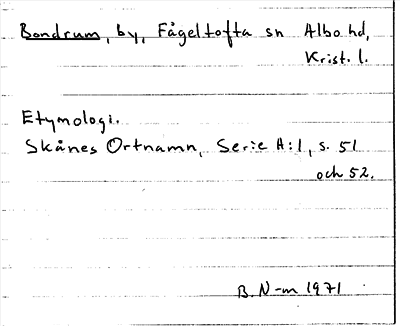 Bondrum, by, Fågeltofta sn Albo hd,
Krist. l.
Etymologi.
Skånes Ortnamn, Serie A:1, s. 51
och 52.
B. N-m 1971